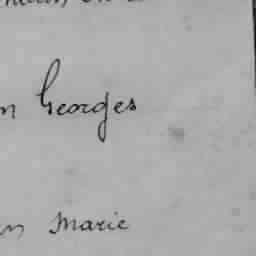 n Georges
n Marie